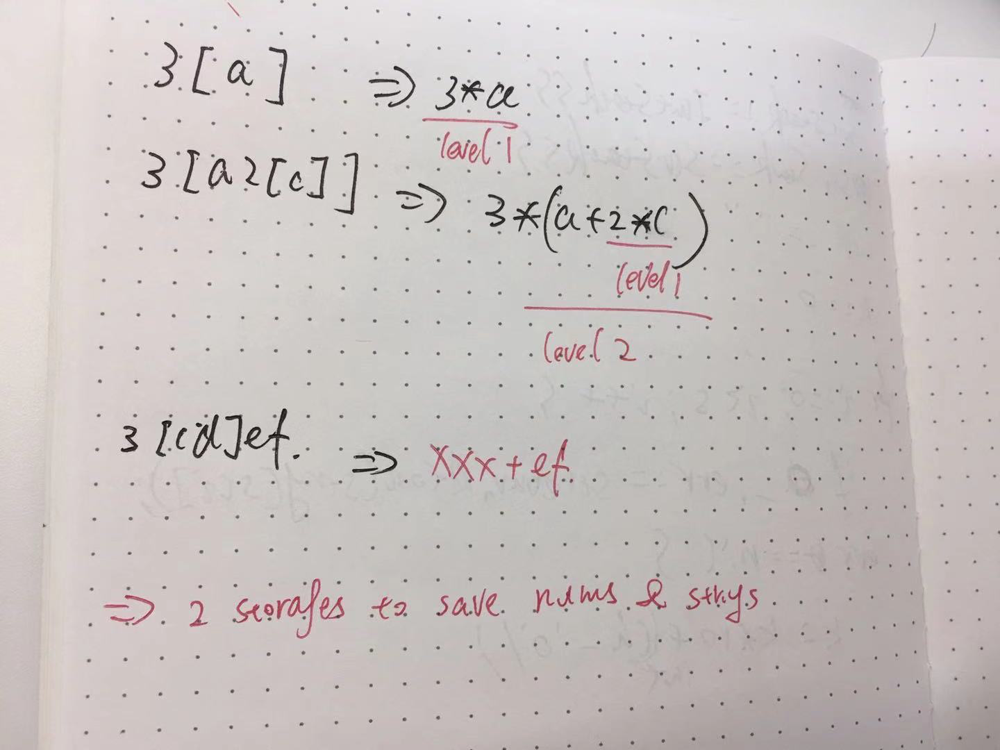 3[a] ⇒ 3*a
level 1
3[a2[c]] ⇒ 3*(a+2*c)
level 1
level 2
3[cd]ef. ⇒ xxx+ef
⇒ 2 storages to save nums & strings